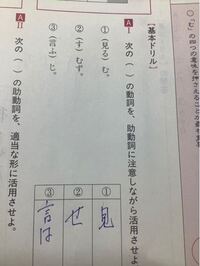 ○「む」の四つの意味を押さえることが重要
【基本ドリル】
A I 次の( )の動詞を、助動詞に注意しながら活用させよ
①(見る)む。
②(す)むず。
③(言ふ)じ。
① 見
② せ
③ 言は
A II 次の( )の助動詞を、適当な形に活用させよ。